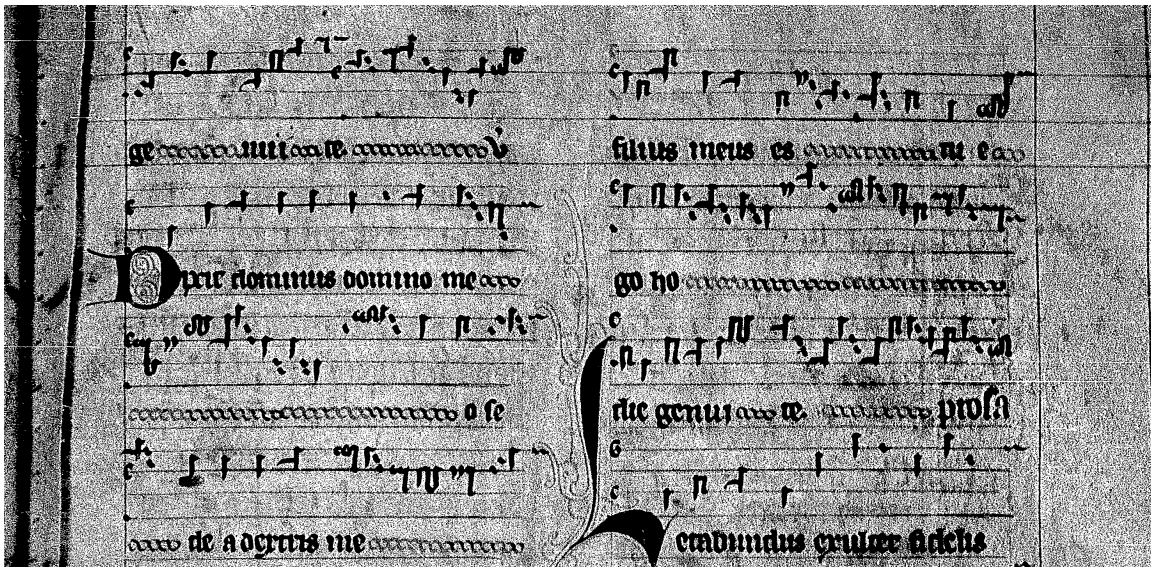 ge nui te V
Dixit dominus domino me
o se
de a dextris me
filius meus es tu e
go ho
die genui te. prosa
etabundus exultet fidelis